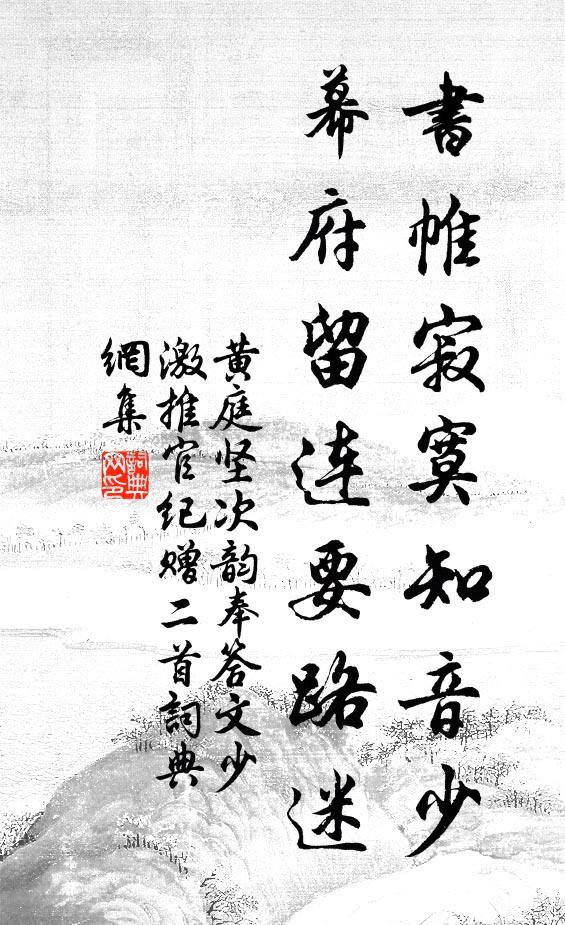 書帷寂寞知音少
幕府留连要路迷
黄庭坚次韵奉答文少
激推官纪赠二首詞典
網集
詞典網印